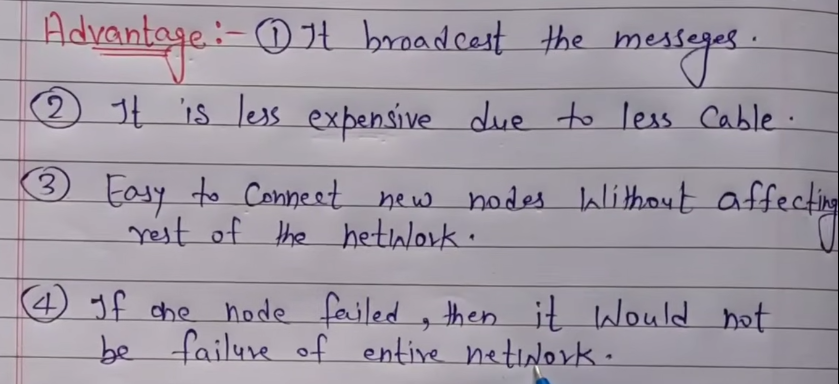 Advantage :- ① It broadcast the messeges.
② It is less expensive due to less Cable.
③ Easy to Connect new nodes Without affecting
rest of the netWork.
④ If one node failed, then it Would not
be failure of entire netWork.